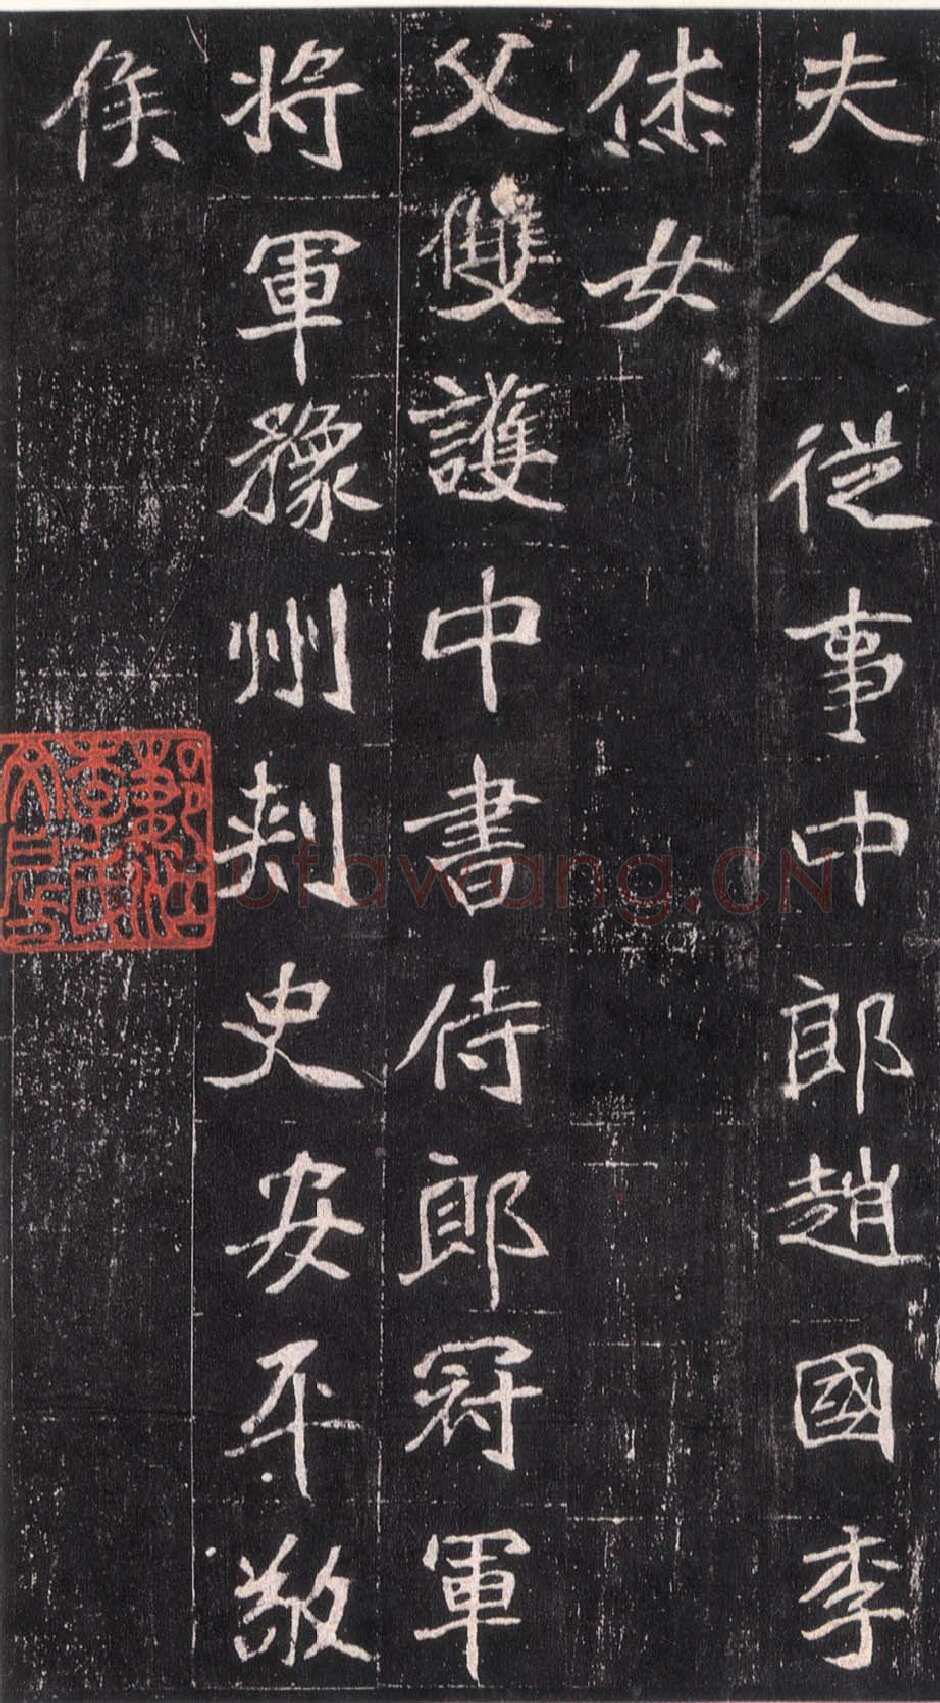 夫人從事中郎趙國李
烋女
父雙護中書侍郎冠軍
將軍豫州刺史安平敬
侯
ufawang.CN